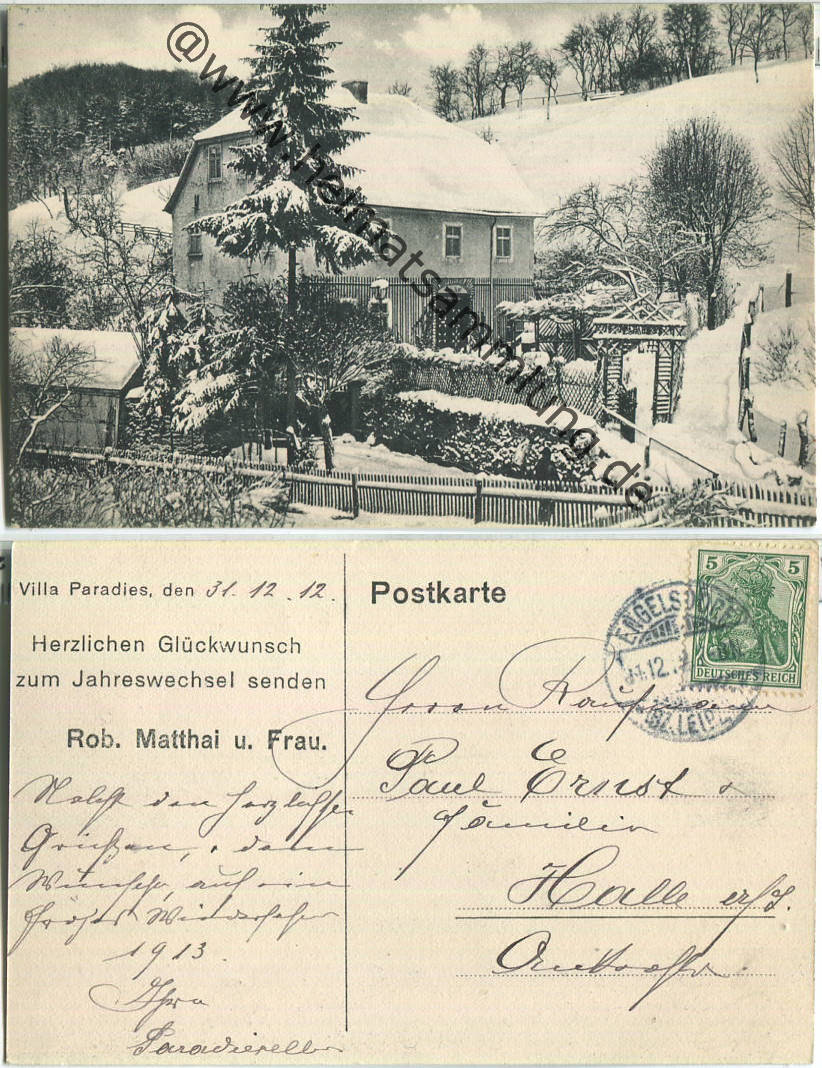 @www.heimatsammlung.de
Villa Paradies, den 31.12.12.
Herzlichen Glückwunsch
zum Jahreswechsel senden
Rob. Matthai u. Frau.
Nebst den herzlichsten
Grüßen, dem
Wunsche, auf ein
frohes Wiedersehen
1913.
Ihre
Postkarte
5 5
DEUTSCHES REICH
ENGELSDORF
31.12.
LEIPZ
Herrn Kaufmann
Paul Ernst &
Familie
Halle a/S.